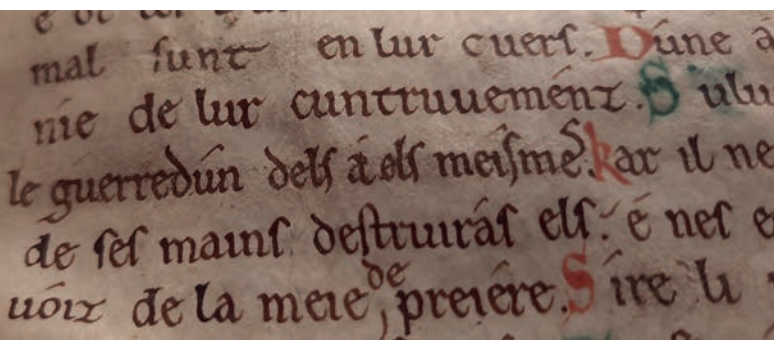 mal sunt en lur cuers. Dúne á
nie de lur cuntruuemént. S ulu
le guerredún dels á els meismes. kar il ne
de ses mains destruirás els. é nes e
uóiz de la meie de preiére. Sire li